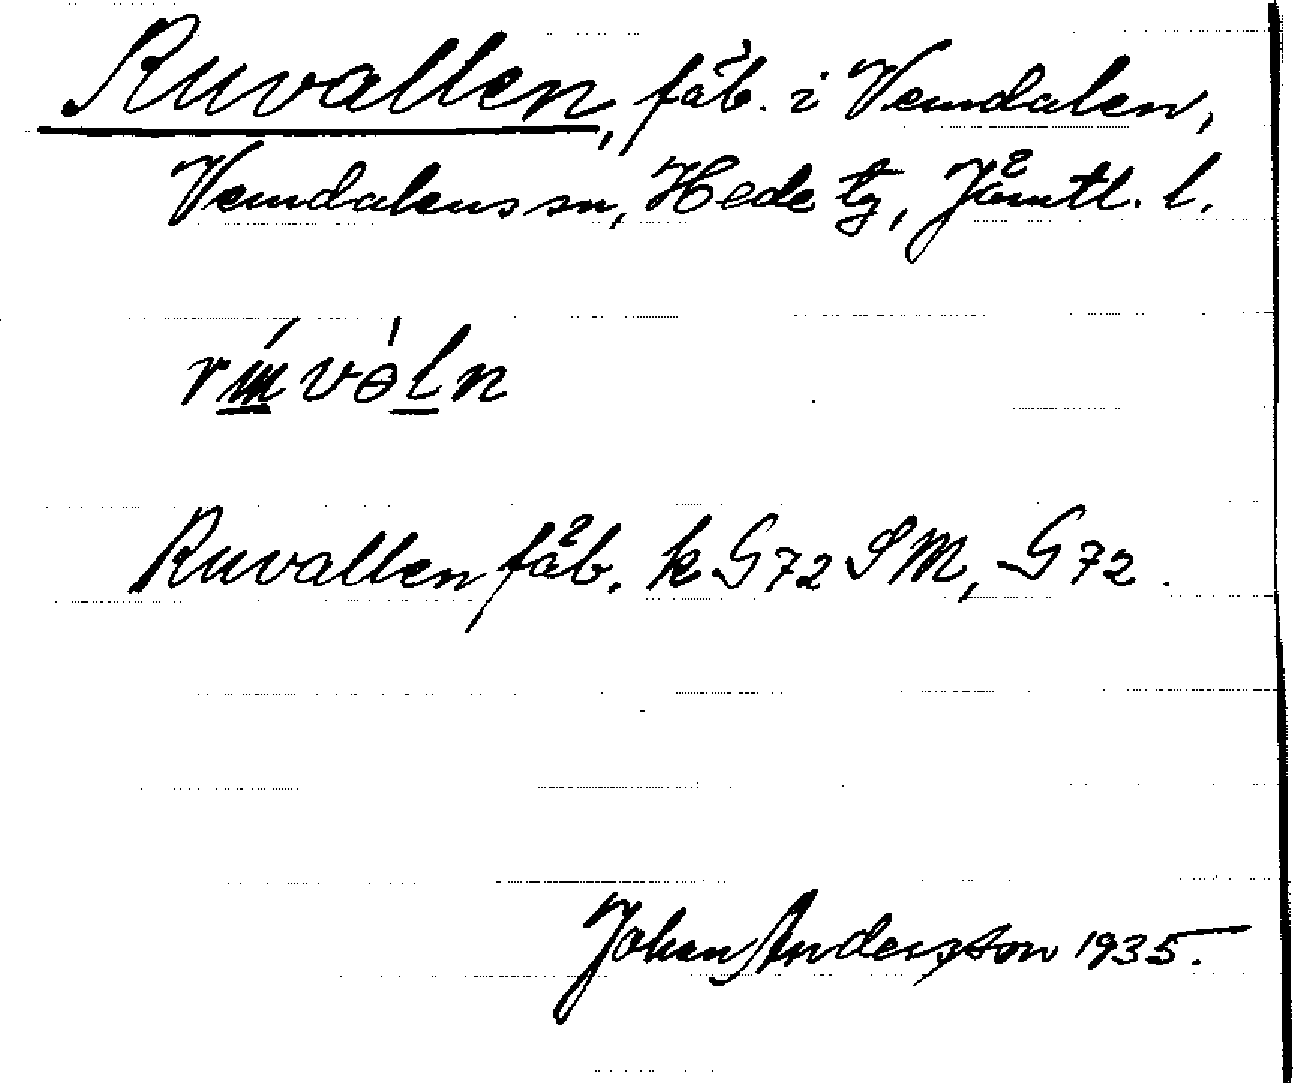 Ruvallen, fäb. i Vemdalen,
Vemdalens sn, Hede tg, Jämtl. l.
Ruvallen fäb. k G72 SM, G72.
Johan Andersson 1935.